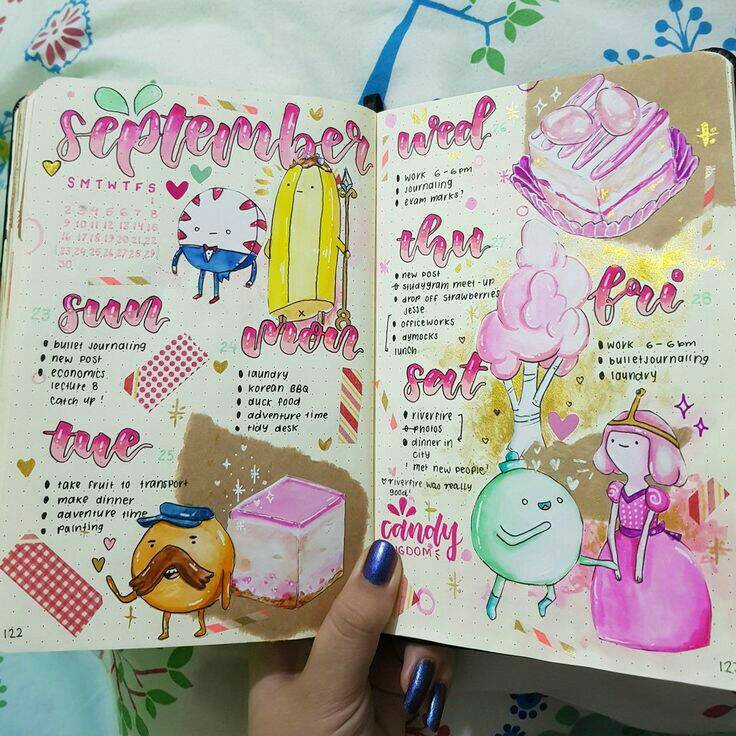 september
S M T W T F S
2 3 4 5 6 7 8
9 10 11 12 13 14 15
16 17 18 19 20 21 22
23 24 25 26 27 28 29
30
23
sun
bullet journaling
new post
economics
lecture 8
catch up!
24
mon
laundry
korean BBQ
duck food
adventure time
tidy desk
25
tue
take fruit to transport
make dinner
adventure time
painting
8
122
wed
26
work 6-6pm
journaling
exam marks!
thu
27
new post
studygram meet-up
drop off strawberries
jesse
officeworks
dymocks
lunch
fri
28
work 6-6pm
bulletjournaling
laundry
sat
riverfire
photos
dinner in
city
! met new people!
riverfire was really
good!
candy
NGDOM
12